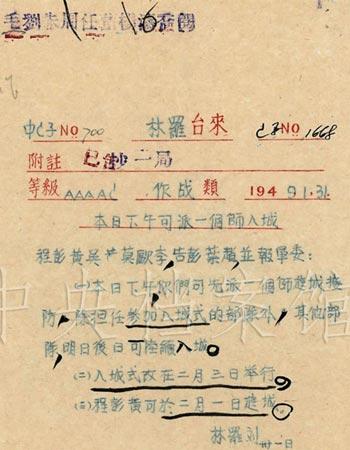 毛劉朱周任
中乙子NO 700 林羅台來 乙子NO 1668
附註 已抄二局
等級 AAAAC 作战類 1949.1.31.
本日下午可派一個師入城
程彭黃吳尹莫歐李告彭葉趙並報軍委：
㈠本日下午你們可先派一個師進城接
防，除担任參加入城式的部隊外，其他部
隊明日後日可陸續入城。
㈡入城式改在二月三日舉行，
㈢程彭黃可於二月一日進城。
林羅刘
卅一日
中央档案馆